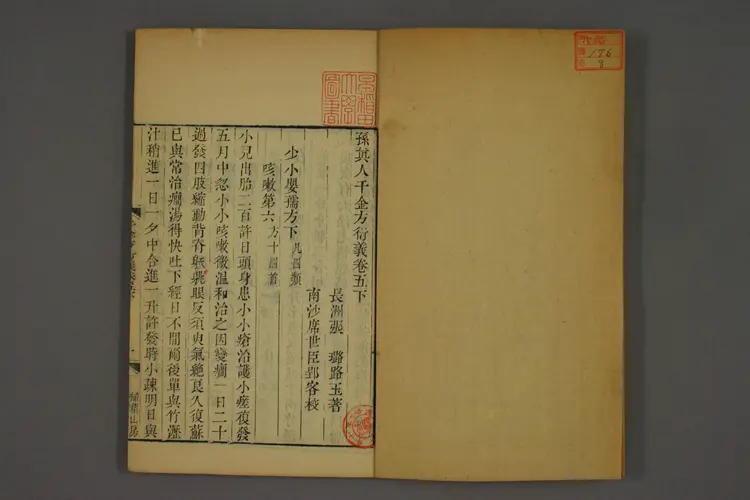 孫真人千金方衍義卷五下
長洲張　璐路玉著
南沙席世臣郢客校
少小嬰孺方下凡四類
咳嗽第六方十四首
小兒出胎二百許日頭身患小小瘡治護小瘥復發
五月中忽小小咳嗽微溫和治之因變癇一日二十
過發四肢縮動背脊㒩㒤眼反須臾氣絕良久復蘇
已與常治癇湯得快吐下經日不間爾後單與竹瀝
汁稍進一日一夕中合進一升許發時小疎明日與
掃葉山房
早稻田大學圖書
176
8